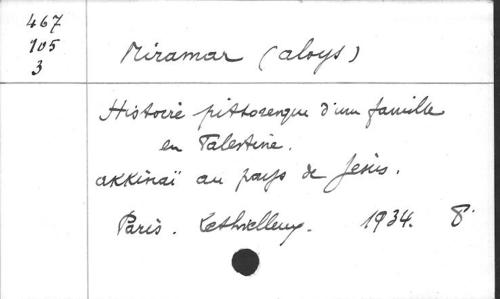 467
105
3
Miramar (Aloys)
Histoire pittoresque d'une famille
en Palestine.
akkinaï au pays de Jésus.
Paris. Lethielleux. 1934. 8°.